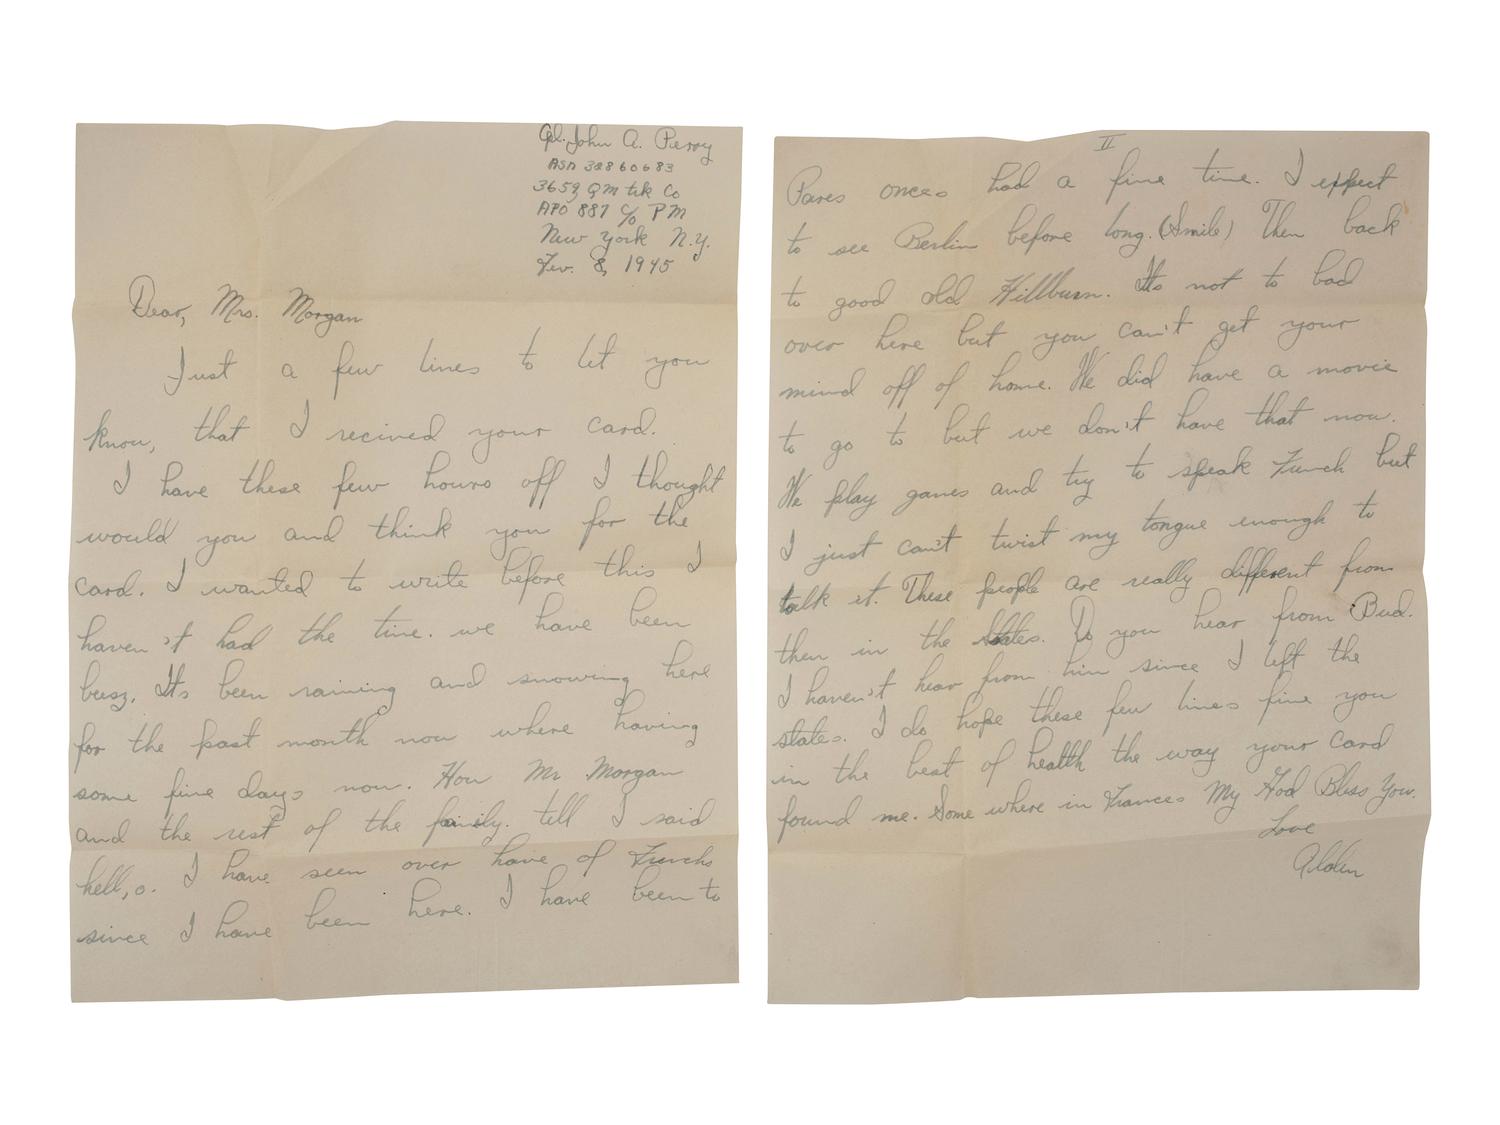 Cpl. John A. Perry
ASN 32860683
3659 QM trk Co
APO 887 c/o PM
New York N.Y.
Fev. 8, 1945
Dear, Mrs. Morgan
Just a few lines to let you
know, that I recived your card.
I have these few hours off I thought
would you and think you for the
card. I wanted to write before this I
haven't had the time. we have been
busz. Its been raining and snowing here
for the past month now where having
some fine days now. How Mr Morgan
and the rest of the family. tell I said
hell,o. I have seen over have of
since I have been here. I have been to
II
Pares onces had a fine time. I expect
to see Berlin before long. (Smile) Then back
to good old Hillburn. Its not to bad
over here but you can't get your
mind off of home. We did have a movie
to go to but we don't have that now.
We play games and try to speak Funch but
I just can't twist my tongue enough to
talk it. These people are really different from
then in the States. Do you hear from Bud.
I haven't hear from him since I left the
states. I do hope these few lines fine you
in the best of health the way your card
found me. Some where in Frances My God Bless You.
Love
Alden